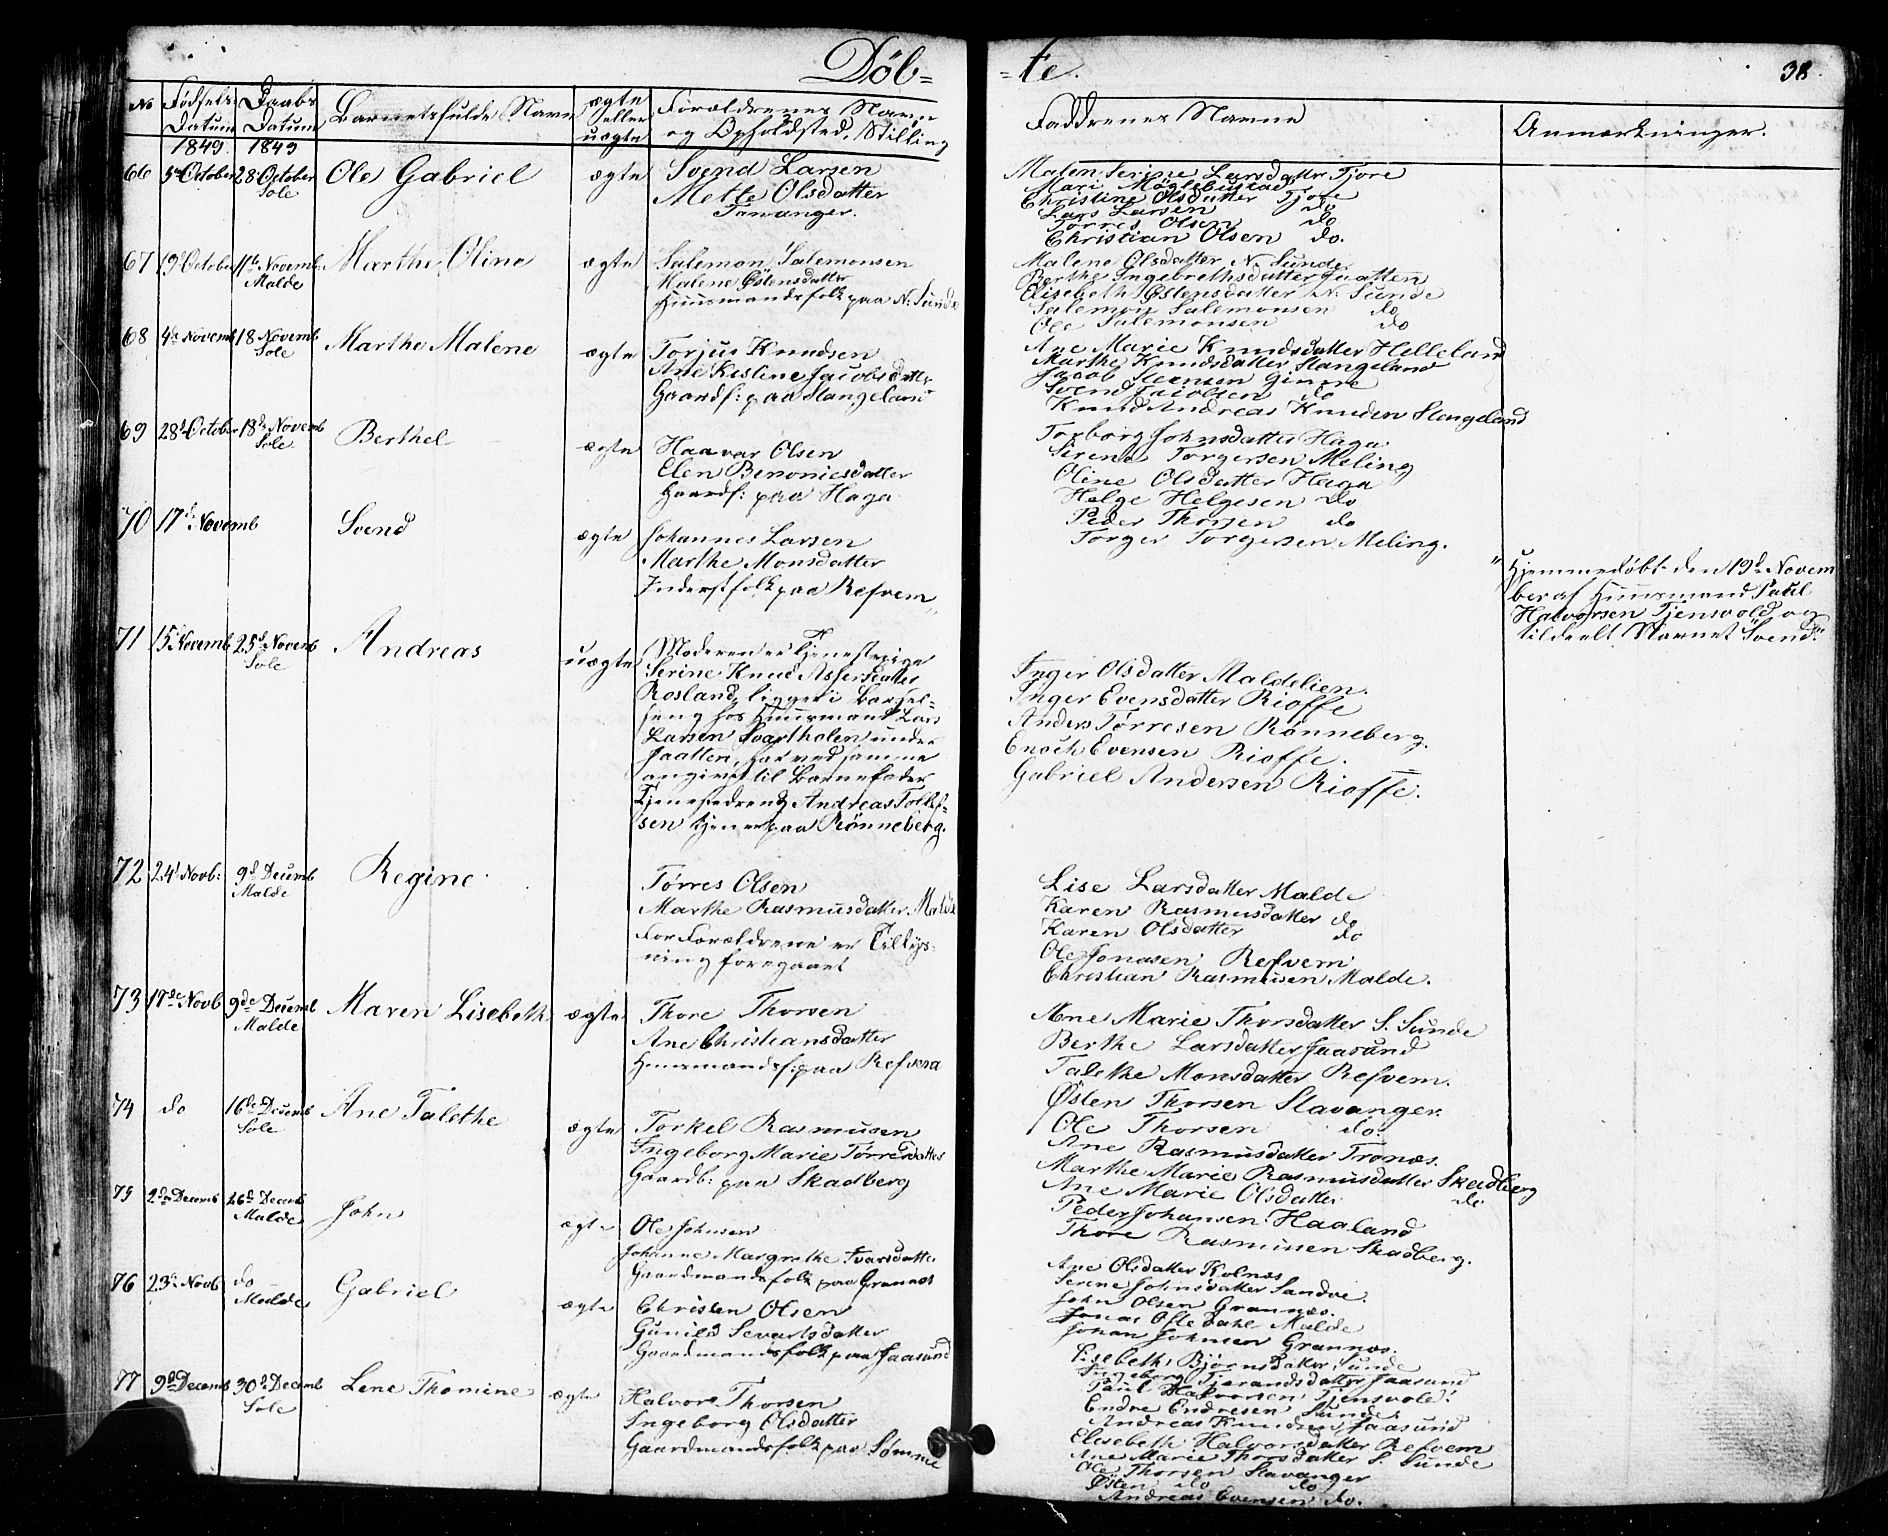 Døb=
=te.
38.
No
Fødsels Datum
Daabs Datum
Barnets fulde Navn
ægte eller uægte
Forældrenes Navn og Opholdsted, Stilling
Faddrenes Navne
Anmærkninger.
1849. 1849
66 5te October 28 October Sole
Ole Gabriel
ægte
Svend Larsen
Mette Olsdatter
Tananger.
Malen Serine Larsdatter Tjore
Christine Olsdatter Tjore
Lars Larsen do
Tørres Olsen do
Christian Olsen do.
67 19 October 11te Novemb. Malde
Marthe Oline
ægte
Salemon Salemonsen
Malene Østensdatter
Huusmandsfolk paa N. Sunde
Malene Olsdatter N. Sunde
Berthe Ingebrethsdatter Jaatten
Elisebeth Østensdatter N. Sunde
Salemon Salemonsen do
Ole Salemonsen do
68 4de Novemb 18 Novemb Sole
Marthe Malene
ægte
Torjus Knudsen
Ane Kistine Jacobsdatter
Gaardf: paa Stangeland
Ane Marie Knudsdatter Helleland
Marthe Knudsdatter Stangeland
Jacob Steensen Gimre
Svend Jacobsen do
Knud Andreas Knudsen Stangeland
69 28d October 18de Novemb Sole
Berthel
ægte
Haavar Olsen
Elen Benoniesdatter
Gaardf: paa Haga
Torborg Johnsdatter Haga
Serene Torgersen Meling
Oline Olsdatter Haga
Helge Helgesen do
Peder Thorsen do
Torger Torgersen Meling.
70 17de Novemb
Svend
ægte
Johannes Larsen
Marthe Monsdatter
Inderstfolk paa Refvem
"Hjemmedøbt den 19de Novem
ber af Huusmand Paul
Halvorsen Tjensvold og
tildeelt Navnet "Svend."
71 15d Novemb 25d Novemb Sole
Andreas
uægte
Moderen er Tjenestepige
Serine Knud Assersdatter
Rosland, ligger i Barsel-
seng hos Huusmand Lars
Larsen Svartholen under
Jaatten, har ved samme
angivet til Barnefader
Tjenestedreng Andreas Tollef-
sen tjener paa Rønneberg.
Inger Olsdatter Maldelien.
Inger Evensdatter Rioffe
Anders Tørresen Rønneberg.
Enoch Evensen Rioffe.
Gabriel Andersen Rioffe.
72 24d Novb: 9d Decemb Malde
Regine
Tørres Olsen
Marthe Rasmusdatter Malde
For Forældrene er Tillys-
ning foregaaet
Lise Larsdatter Malde
Karen Rasmusdatter do
Karen Olsdatter do
Ole Jonasen Refvem
Christian Rasmusen Malde.
73 17de Novb 9de Decemb Malde
Maren Lisebeth
ægte
Thore Thorsen
Ane Christiansdatter
Huusmandsf: paa Refvem
Ane Marie Thorsdatter S. Sunde
Berthe Larsdatter Jaasund
Talethe Monsdatter Refvem.
Østen Thorsen Stavanger
Ole Thorsen do.
74 do 16de Decemb Sole
Ane Talethe
ægte
Torkel Rasmusen
Ingeborg Marie Tørresdatter
Gaardb: paa Skadberg
Ane Rasmusdatter Tronæs.
Marthe Marie Rasmusdatter Skadberg
Ane Marie Olsdatter do
Peder Johansen Haaland
Thore Rasmusen Skadberg.
75 2de Decemb 26de Decemb Malde
John
ægte
Ole Johnsen
Johanne Margrethe Ivarsdatter
Gaardmandsfolk paa Grannes
Ane Olsdatter Kolnæs
Serene Johnsdatter Sandve.
John Olsen Grannæs.
Jonas Ofte Dahl Malde
Johan Johnsen Grannæs.
76 23de Novb do Malde
Gabriel
ægte
Christen Olsen
Gunild Sevartsdatter
Gaardmandsfolk paa Jaasund
Elsebeth Bjørnsdatter Sunde
Ingeborg Tjerandsdatter Jaasund
Paul Halvorsen Tjensvold.
Endre Endresen Sunde.
Andreas Knudsen Jaasund
77 9de Decemb 30te Decemb Sole
Lene Thomine
ægte
Halvor Thorsen
Ingeborg Olsdatter
Gaardmandsfolk paa Sømme
Elisebeth Halvorsdatter Refvem
Ane Marie Thorsdatter S. Sunde
Ole Thorsen Stavanger
Østen do do
Andreas Evensen do.